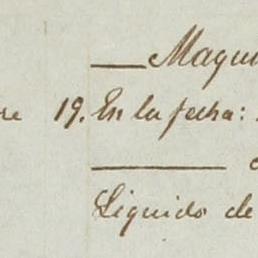 — Maqui
re 19. En la fecha:
—
Liquido de